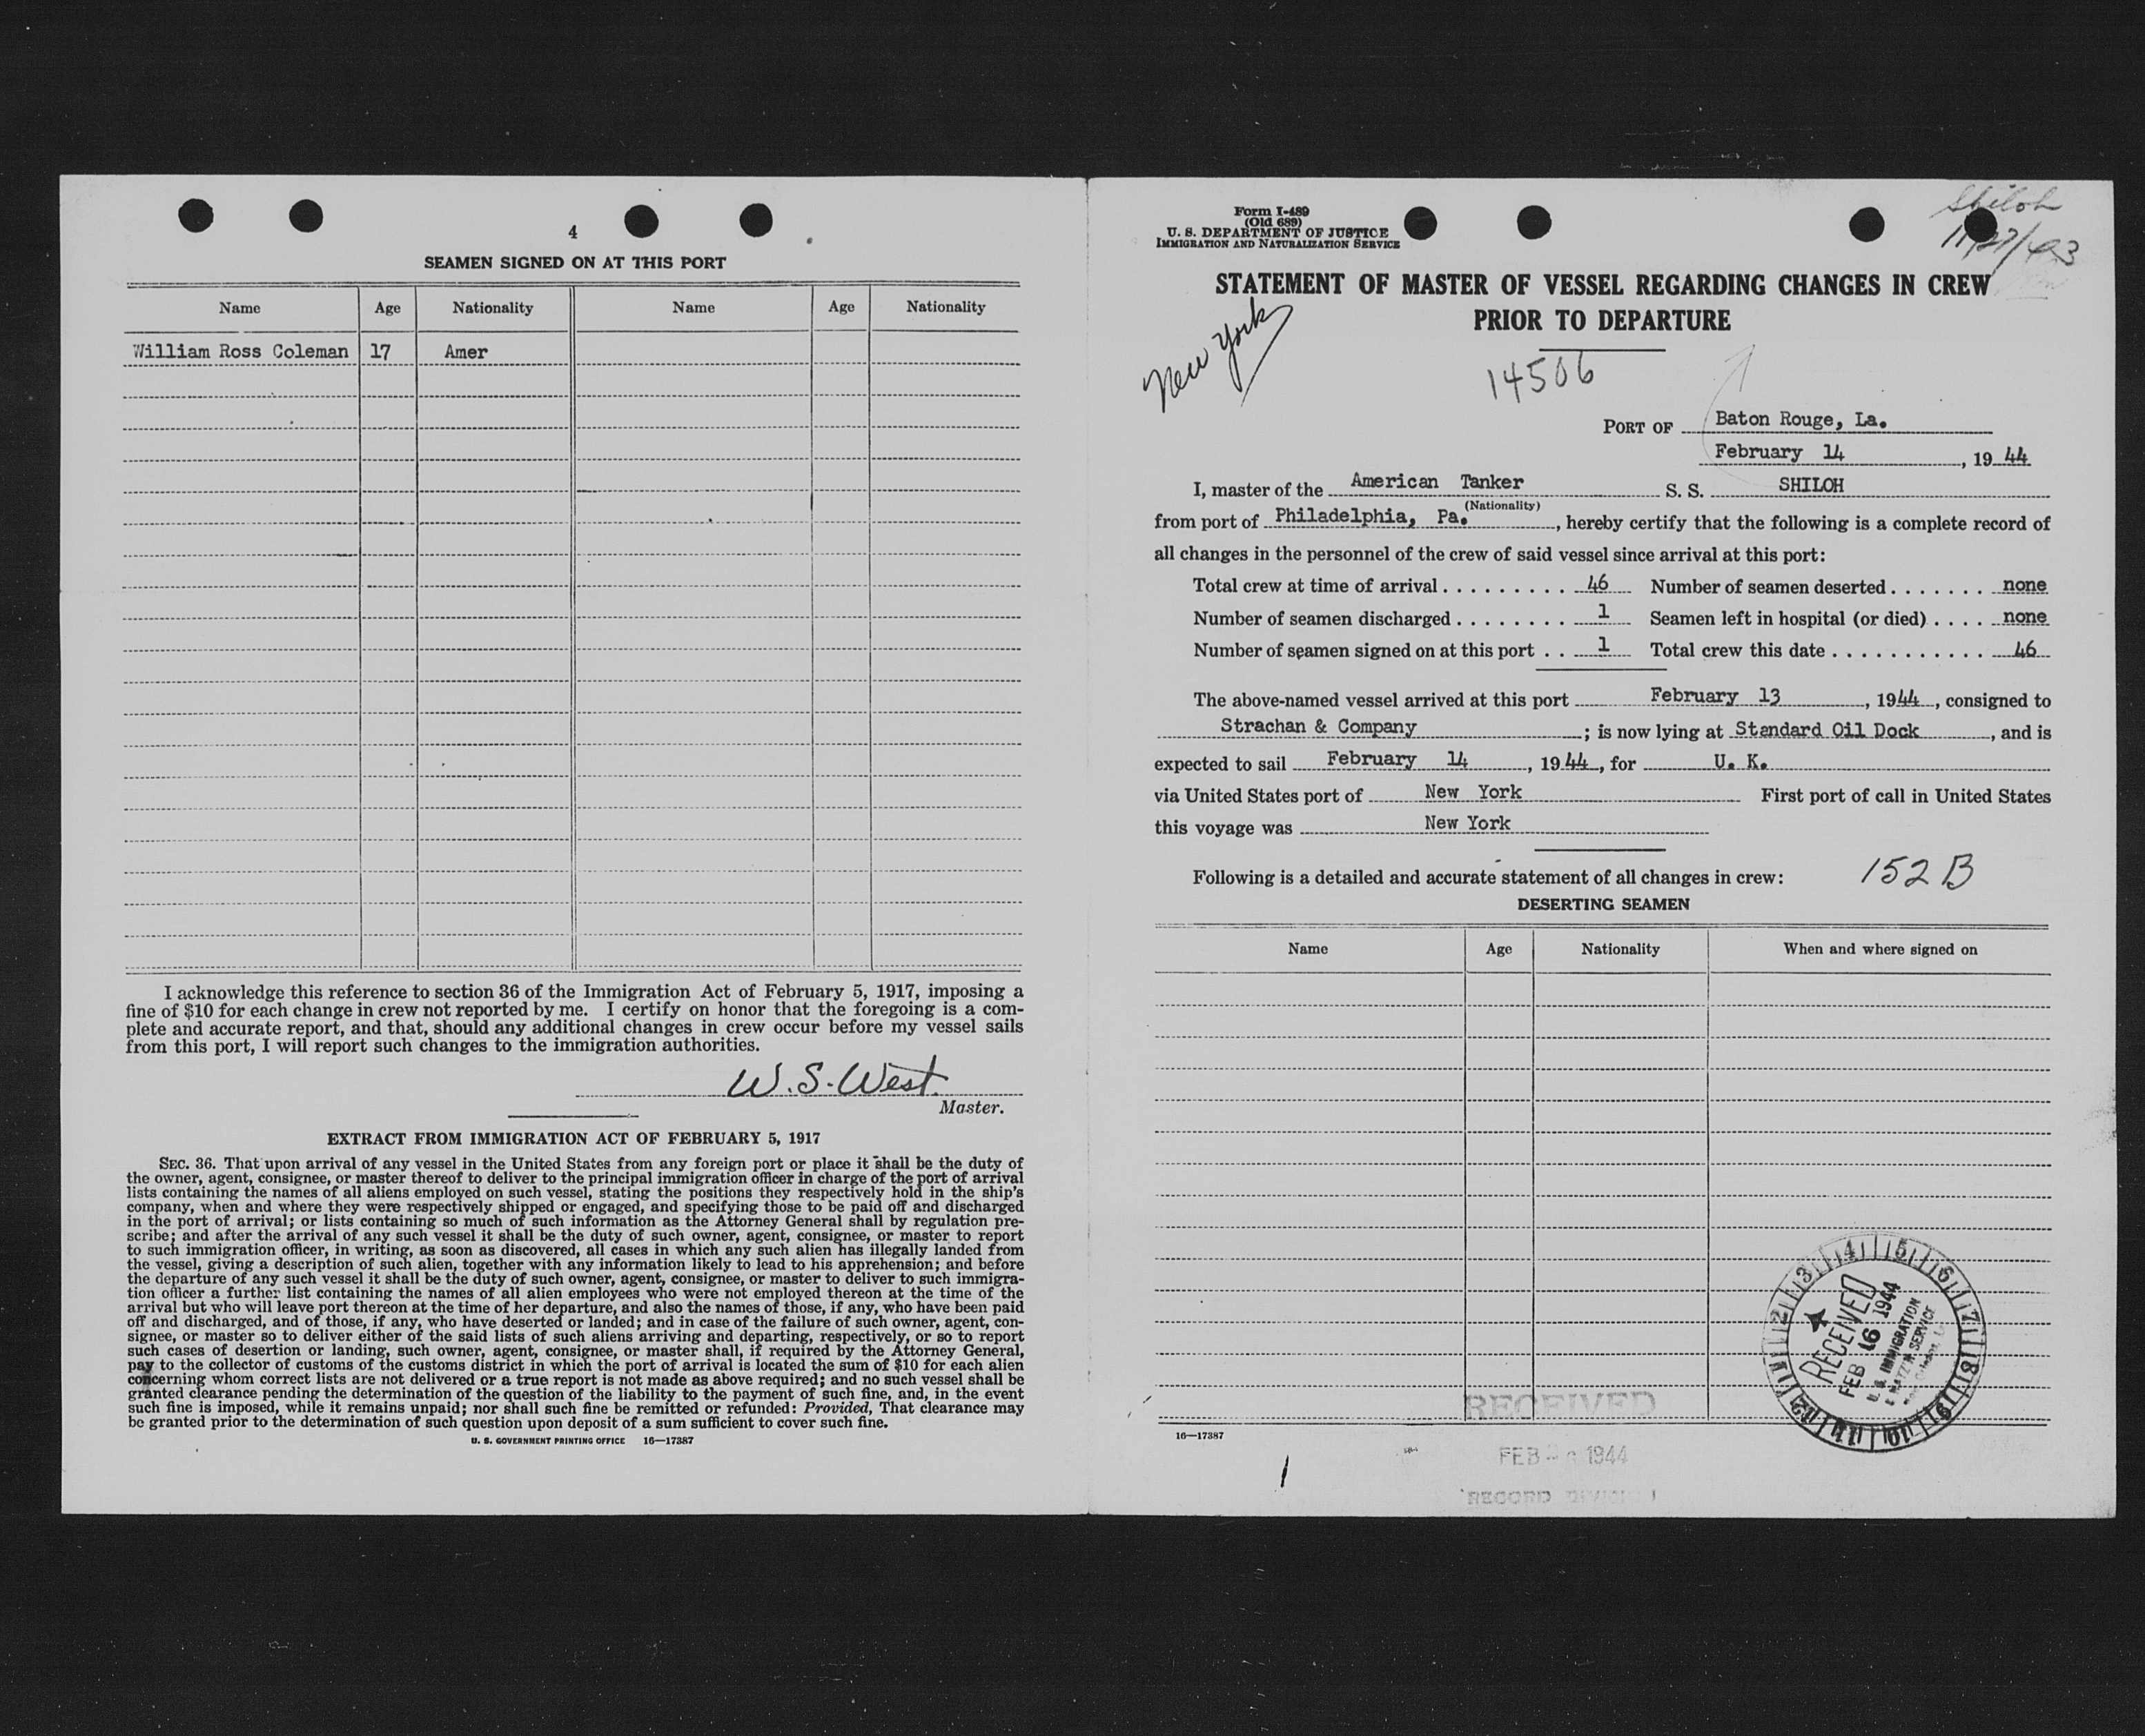 4
SEAMEN SIGNED ON AT THIS PORT
Name Age Nationality Name Age Nationality
William Ross Coleman 17 Amer
I acknowledge this reference to section 36 of the Immigration Act of February 5, 1917, imposing a
fine of $10 for each change in crew not reported by me. I certify on honor that the foregoing is a com-
plete and accurate report, and that, should any additional changes in crew occur before my vessel sails
from this port, I will report such changes to the immigration authorities.
W. S. West.
Master.
EXTRACT FROM IMMIGRATION ACT OF FEBRUARY 5, 1917
SEC. 36. That upon arrival of any vessel in the United States from any foreign port or place it shall be the duty of
the owner, agent, consignee, or master thereof to deliver to the principal immigration officer in charge of the port of arrival
lists containing the names of all aliens employed on such vessel, stating the positions they respectively hold in the ship's
company, when and where they were respectively shipped or engaged, and specifying those to be paid off and discharged
in the port of arrival; or lists containing so much of such information as the Attorney General shall by regulation pre-
scribe; and after the arrival of any such vessel it shall be the duty of such owner, agent, consignee, or master to report
to such immigration officer, in writing, as soon as discovered, all cases in which any such alien has illegally landed from
the vessel, giving a description of such alien, together with any information likely to lead to his apprehension; and before
the departure of any such vessel it shall be the duty of such owner, agent, consignee, or master to deliver to such immigra-
tion officer a further list containing the names of all alien employees who were not employed thereon at the time of the
arrival but who will leave port thereon at the time of her departure, and also the names of those, if any, who have been paid
off and discharged, and of those, if any, who have deserted or landed; and in case of the failure of such owner, agent, con-
signee, or master so to deliver either of the said lists of such aliens arriving and departing, respectively, or so to report
such cases of desertion or landing, such owner, agent, consignee, or master shall, if required by the Attorney General,
pay to the collector of customs of the customs district in which the port of arrival is located the sum of $10 for each alien
concerning whom correct lists are not delivered or a true report is not made as above required; and no such vessel shall be
granted clearance pending the determination of the question of the liability to the payment of such fine, and, in the event
such fine is imposed, while it remains unpaid; nor shall such fine be remitted or refunded: Provided, That clearance may
be granted prior to the determination of such question upon deposit of a sum sufficient to cover such fine.
U. S. GOVERNMENT PRINTING OFFICE 16—17387
Form I-489
(Old 689)
U. S. DEPARTMENT OF JUSTICE
IMMIGRATION AND NATURALIZATION SERVICE
Shiloh
11/27/43
STATEMENT OF MASTER OF VESSEL REGARDING CHANGES IN CREW
PRIOR TO DEPARTURE
New York
14506
PORT OF Baton Rouge, La.
February 14, 1944
I, master of the American Tanker S. S. SHILOH
(Nationality)
from port of Philadelphia, Pa., hereby certify that the following is a complete record of
all changes in the personnel of the crew of said vessel since arrival at this port:
Total crew at time of arrival . . . . . . . . . 46 Number of seamen deserted . . . . . . . none
Number of seamen discharged . . . . . . . . 1 Seamen left in hospital (or died) . . . . none
Number of seamen signed on at this port . . 1 Total crew this date . . . . . . . . . . . 46
The above-named vessel arrived at this port February 13, 1944, consigned to
Strachan & Company; is now lying at Standard Oil Dock, and is
expected to sail February 14, 1944, for U. K.
via United States port of New York First port of call in United States
this voyage was New York
Following is a detailed and accurate statement of all changes in crew:
152 B
DESERTING SEAMEN
Name Age Nationality When and where signed on
1 2 3 4 5 6 7 8 9 10 11 12
RECEIVED
FEB 16 1944
U. S. IMMIGRATION
& NATZ'N. SERVICE
16—17387
RECEIVED
FEB 1944
RECORD
1